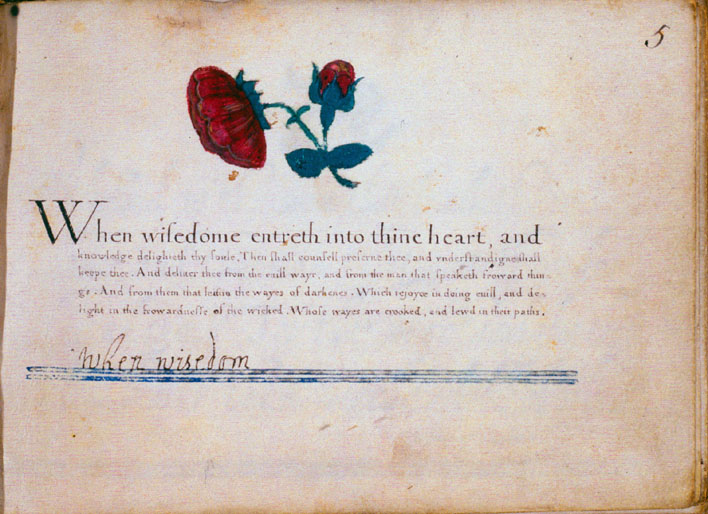 5
When wisedome entreth into thine heart, and
knowledge delighteth thy soule, Then shall counsell preserue thee, and vnderstandigne shall
keepe thee. And deliuer thee from the euill waye, and from the man that speaketh froward thin
gs. And from them that leaue the wayes of darkenes. Which rejoyce in doing euill, and de
light in the frowardnesse of the wicked. Whose wayes are crooked, and lewd in their paths.
When wisedom